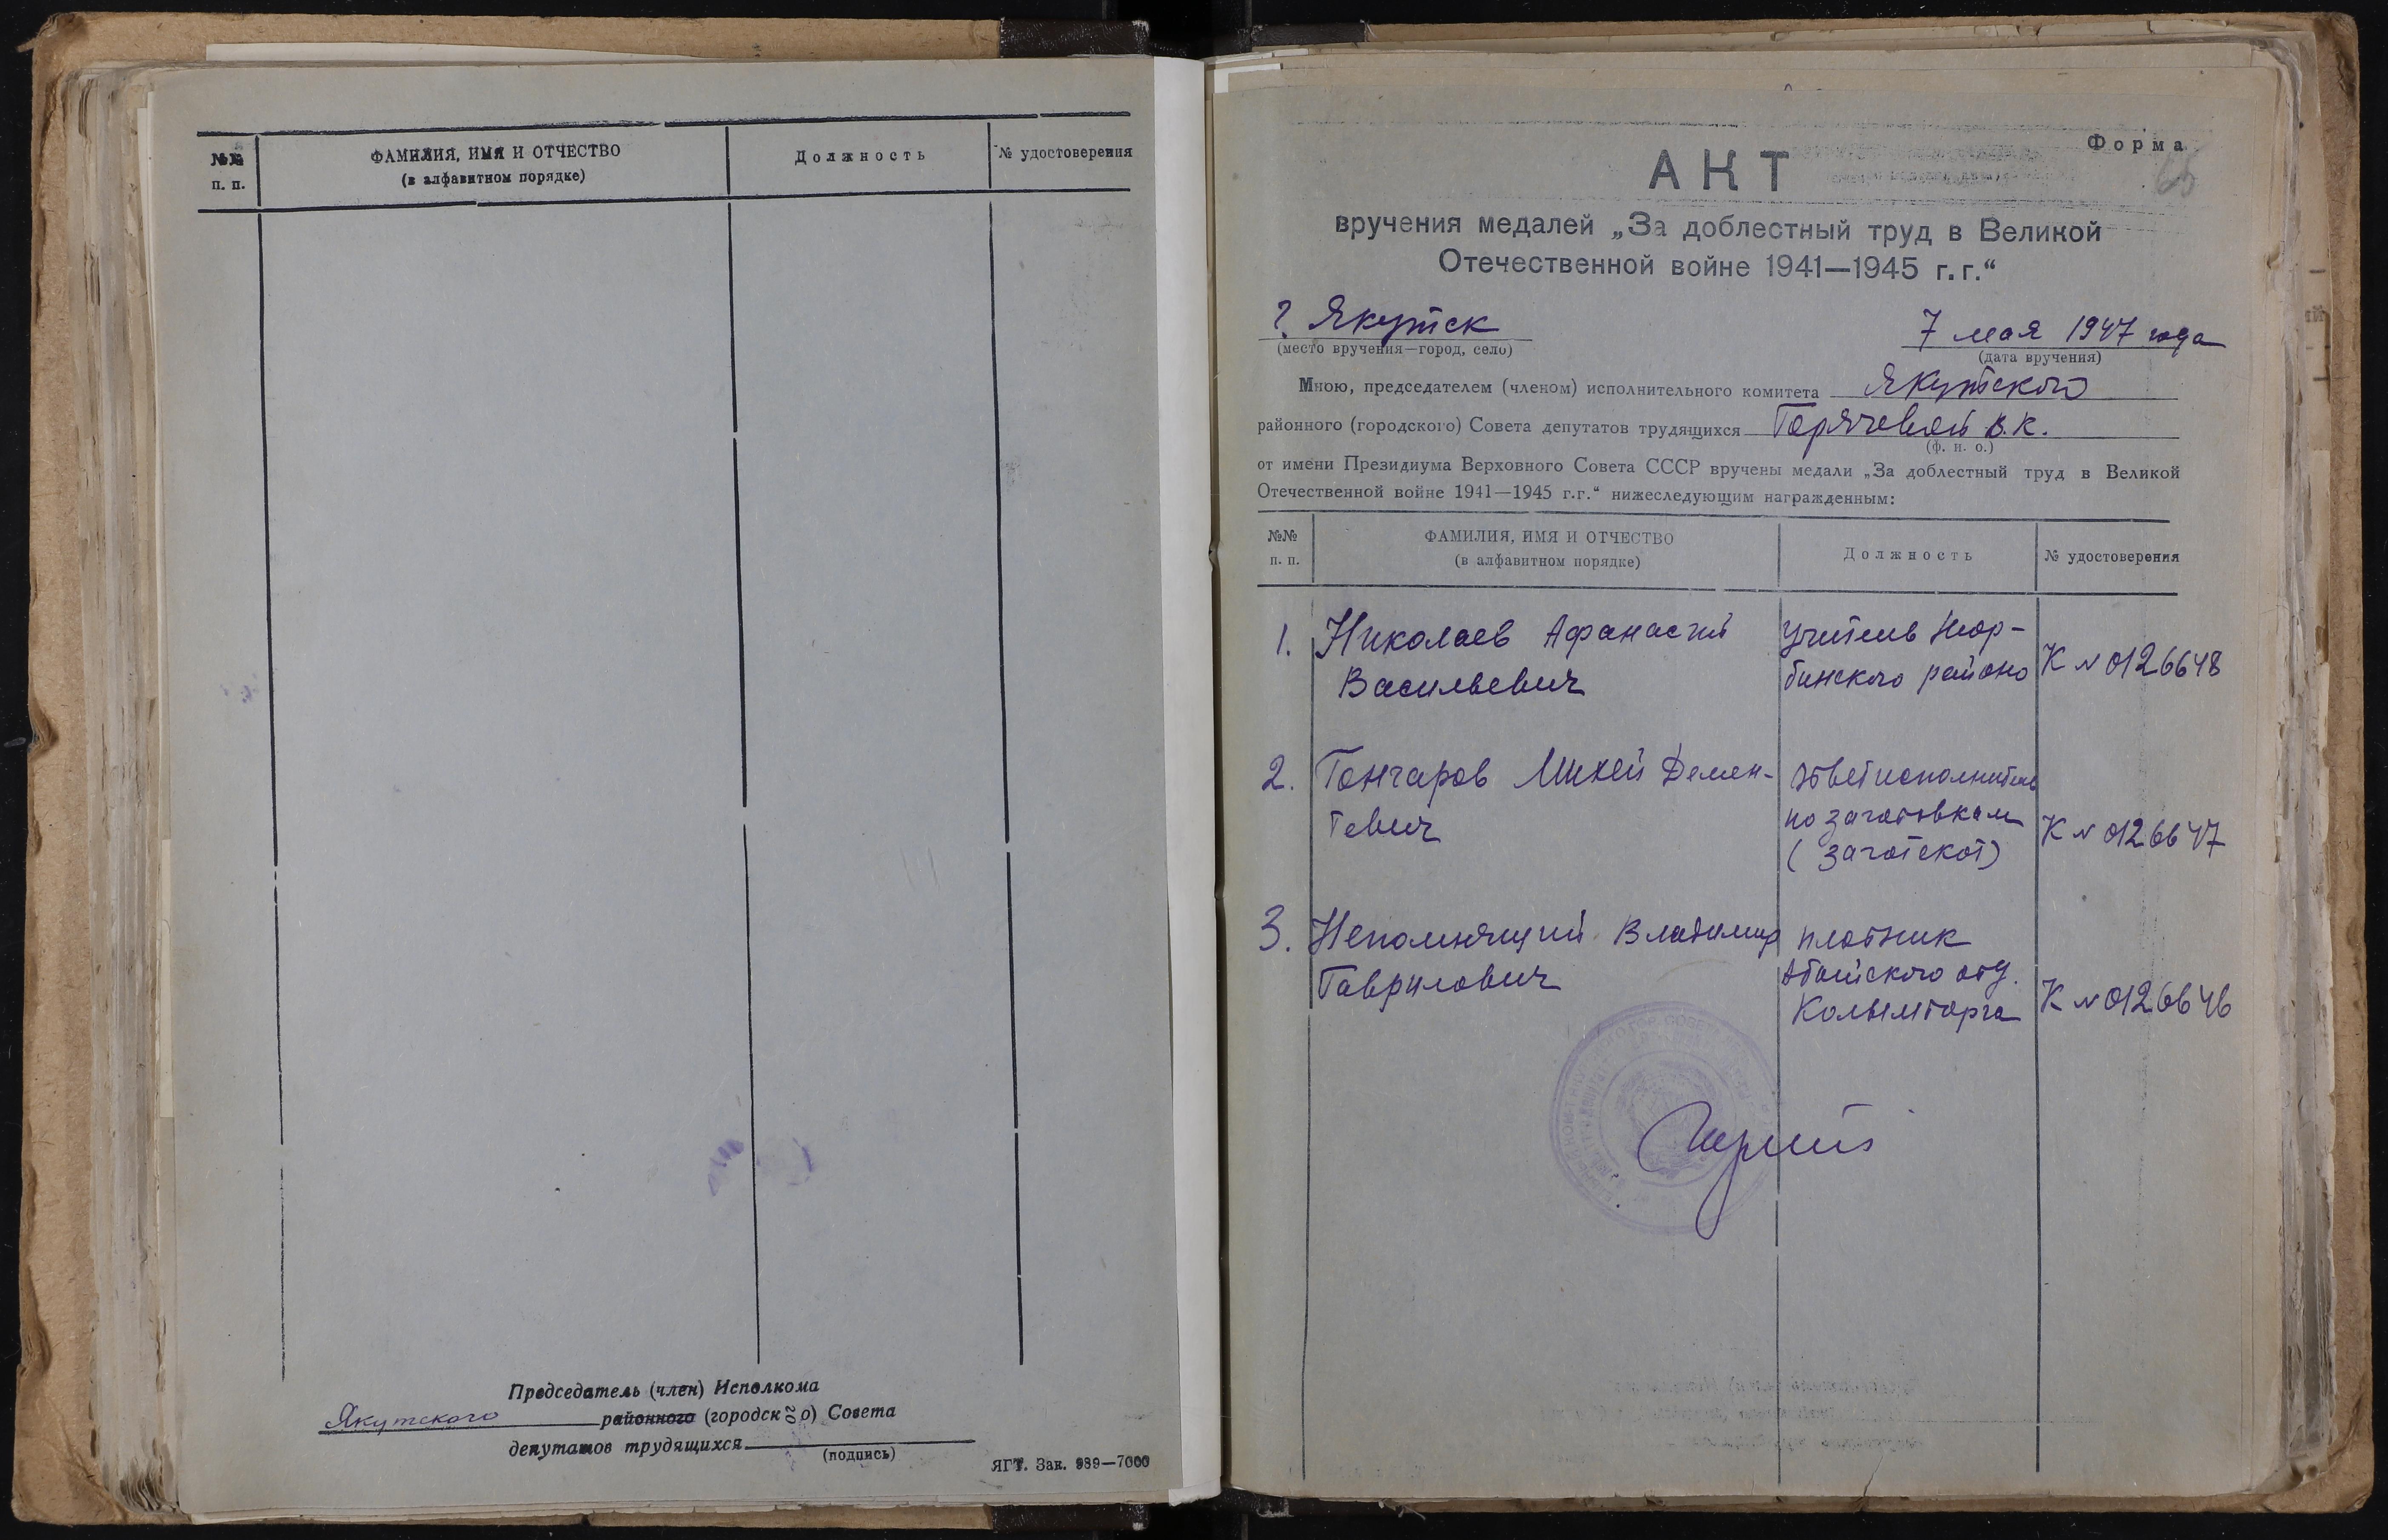 №№
п. п.
ФАМИЛИЯ, ИМЯ И ОТЧЕСТВО
(в алфавитном порядке)
Должность
№ удостоверения
Председатель (член) Исполкома
Якутского районного (городского) Совета
депутатов трудящихся
(подпись)
ЯГТ. Зак. 989—7000
Форма
66
АКТ
вручения медалей „За доблестный труд в Великой
Отечественной войне 1941—1945 г.г.“
г. Якутск
(место вручения—город, село)
7 мая 1947 года
(дата вручения)
Мною, председателем (членом) исполнительного комитета Якутского
районного (городского) Совета депутатов трудящихся Горячевой В.К.
(ф. и. о.)
от имени Президиума Верховного Совета СССР вручены медали „За доблестный труд в Великой
Отечественной войне 1941—1945 г.г.“ нижеследующим награжденным:
№№
п. п.
ФАМИЛИЯ, ИМЯ И ОТЧЕСТВО
(в алфавитном порядке)
Должность
№ удостоверения
1. Николаев Афанасий
Васильевич
учитель Нюр-
бинского района
К № 0126648
2. Гончаров Михей Демен-
тевич
ответисполнитель
по заготовкам
(Заготскот)
К № 0126647
3. Непомнящий Владимир
Гаврилович
плотник
Абыйского отд.
Колымторга
К № 0126646